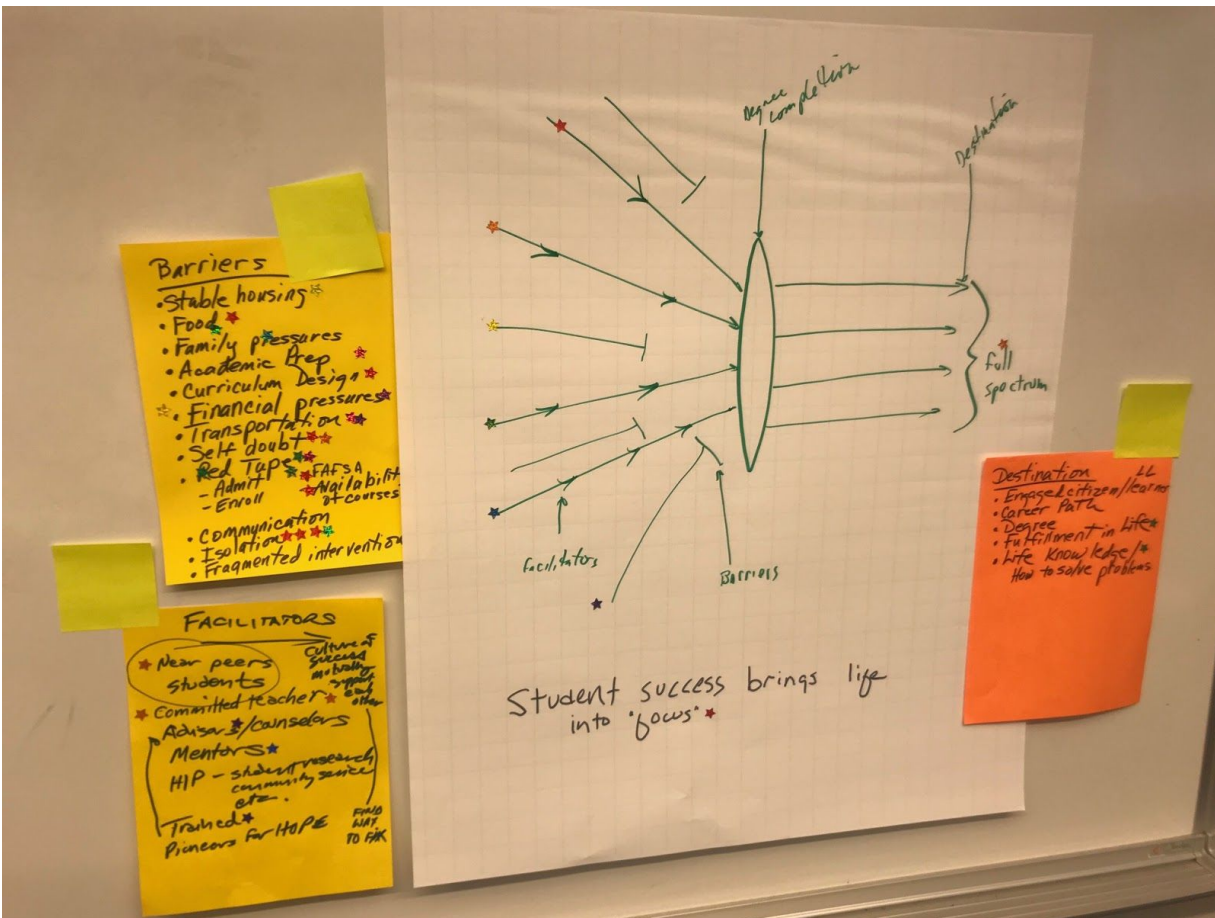 Barriers
• Stable housing
• Food
• Family pressures
• Academic Prep
• Curriculum Design
• Financial pressures
• Transportation
• Self doubt
• Red Tape
- Admit
- Enroll
FAFSA
Availability
of courses
• Communication
• Isolation
• Fragmented intervention
FACILITATORS
Near peers
students
Culture of
success
mutually
support
each
other
Committed teacher
Advisors/counselors
Mentors
HIP - student research
community service
etc.
Trained
Pioneers for HOPE
FIND
WAY
TO FIX
Degree
completion
Destination
full
spectrum
facilitators
Barriers
Student success brings life
into "focus"
Destination
LL
• Engaged citizen/learner
• Career Path
• Degree
• Fulfillment in Life
• Life Knowledge/
How to solve problems